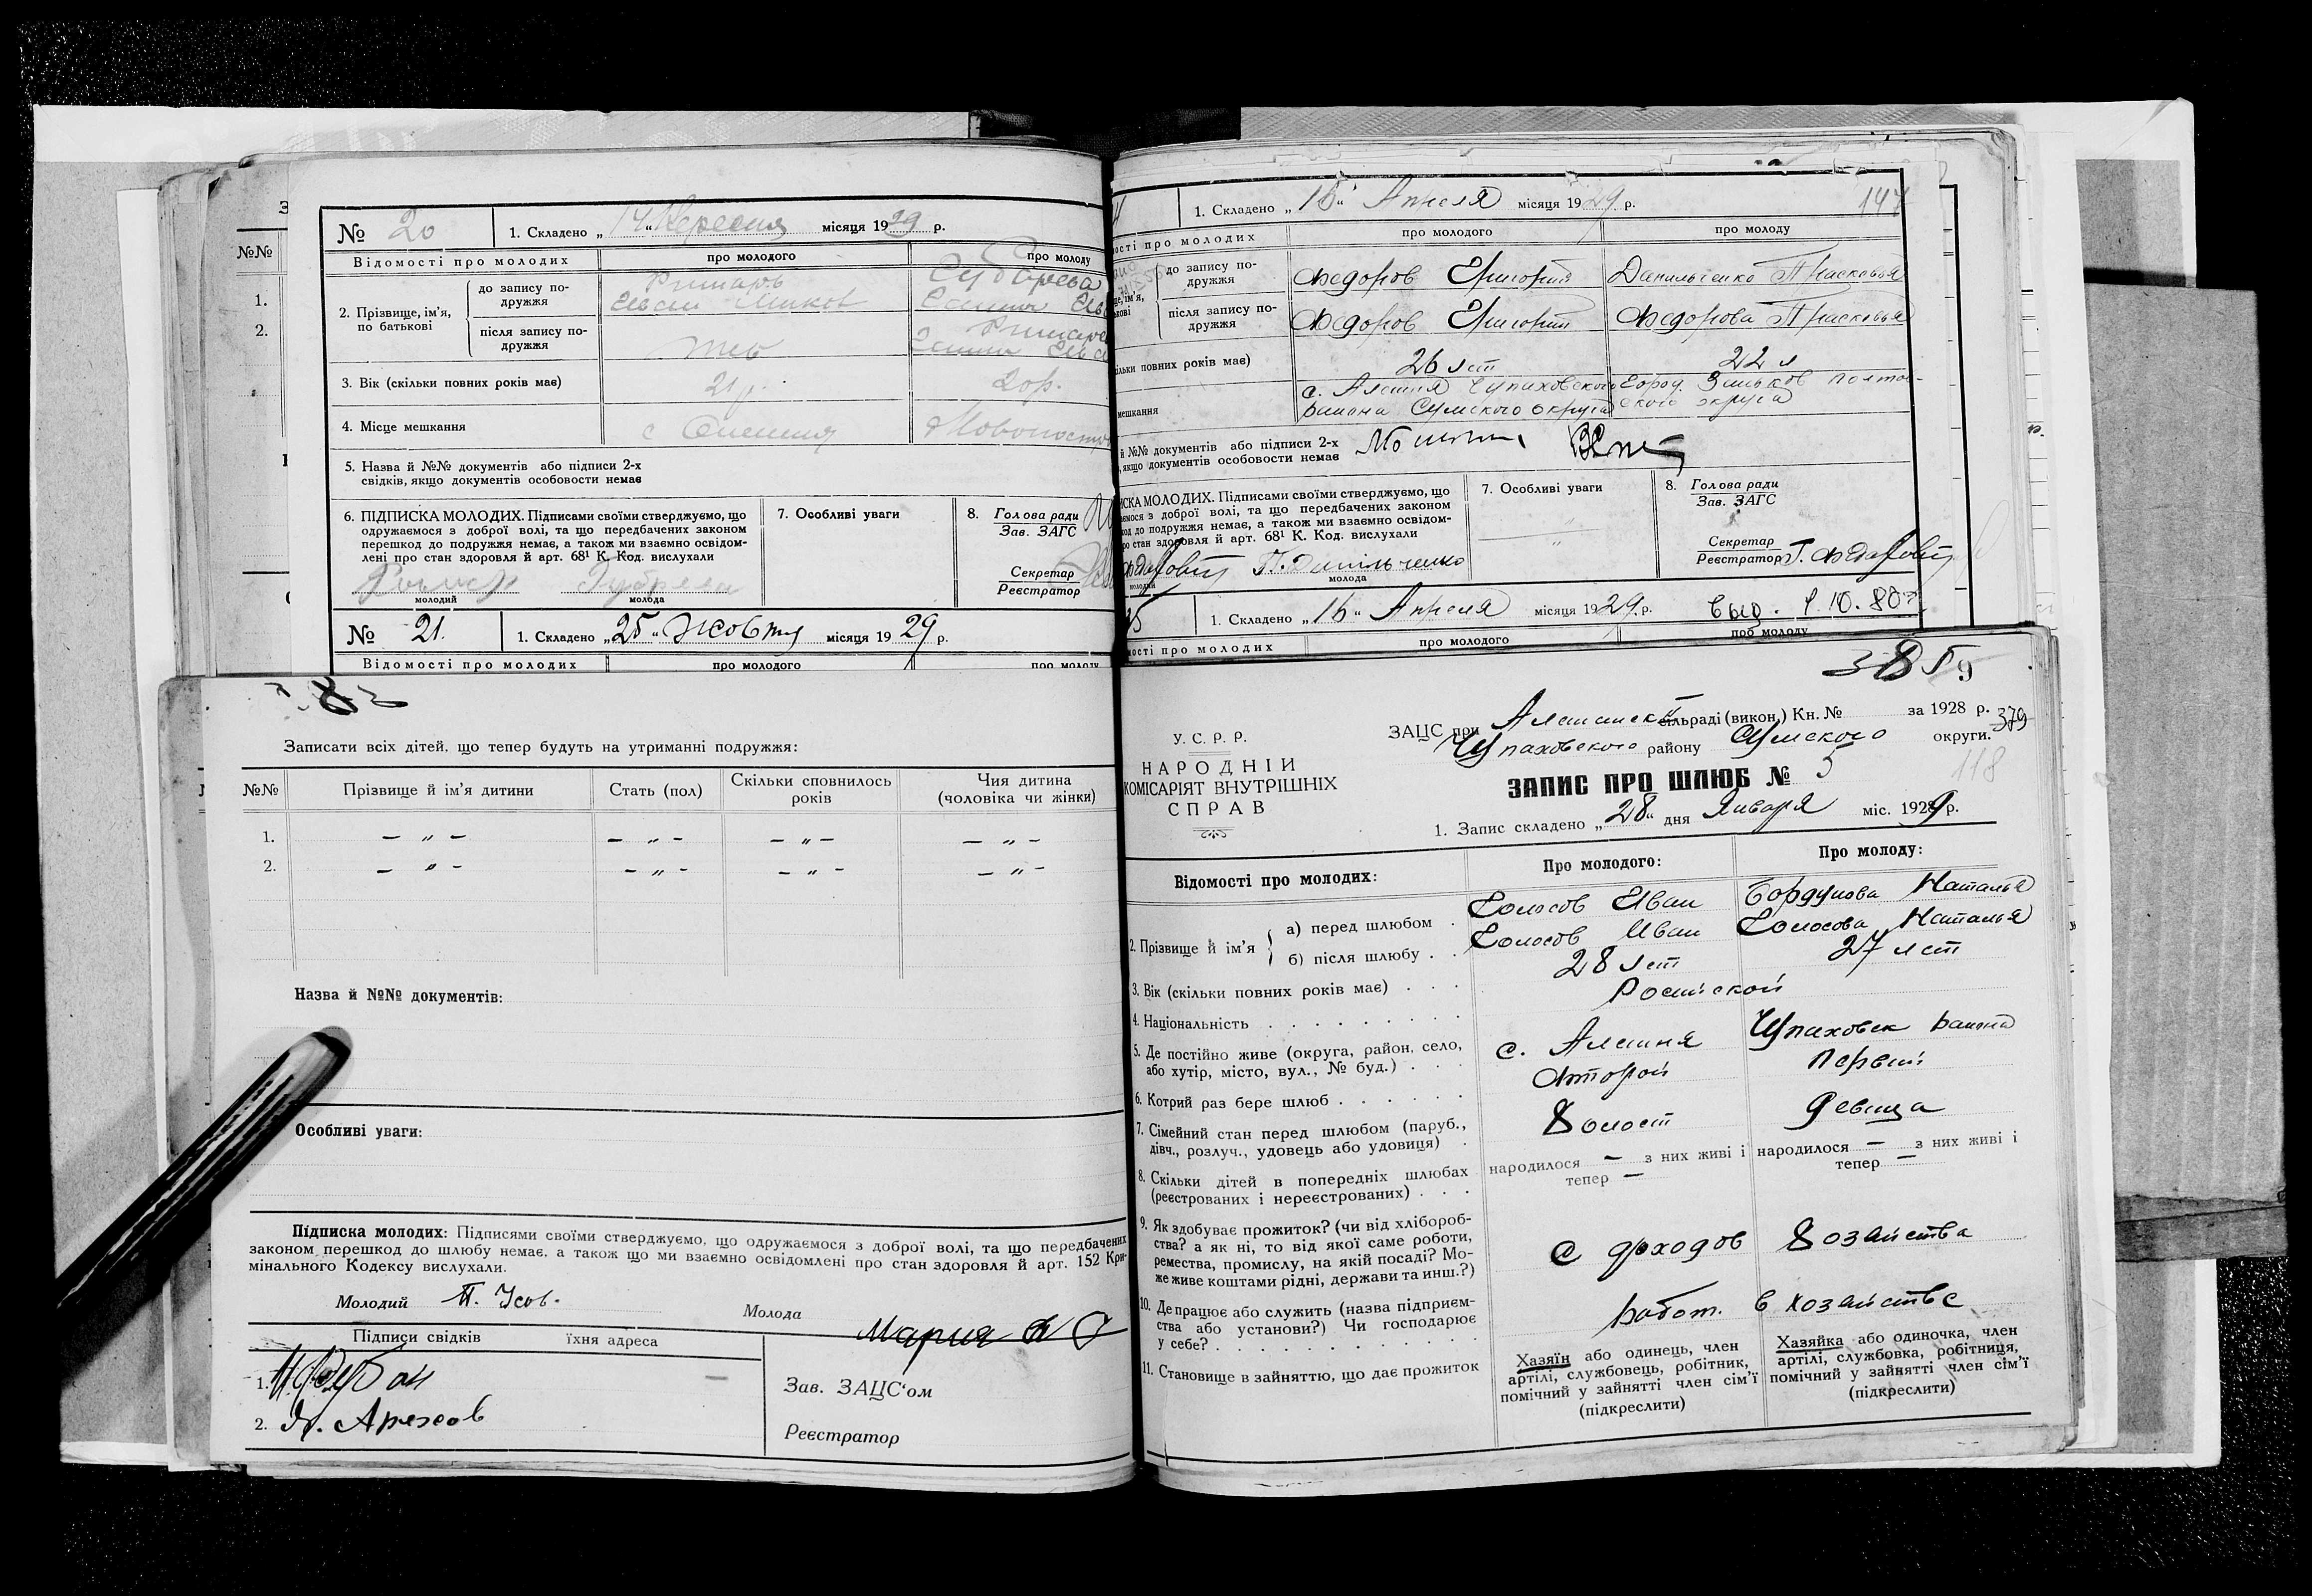 № 20
1. Складено „14“ Вересня місяця 1929 р.
Відомості про молодих
про молодого
про молоду
2. Прізвище, ім'я, по батькові
до запису по-
дружжя
Губарева
після запису по-
дружжя
теж
3. Вік (скільки повних років має)
21 р.
20 р.
4. Місце мешкання
с
5. Назва й №№ документів або підписи 2-х
свідків, якщо документів особовости немає
6. ПІДПИСКА МОЛОДИХ. Підписами своїми стверджуємо, що
одружаємося з доброї волі, та що передбачених законом
перешкод до подружжя немає, а також ми взаємно освідом-
лені про стан здоровля й арт. 68¹ К. Код. вислухали
молодий
молода
7. Особливі уваги
8. Голова ради
Зав. ЗАГС
Секретар
Реєстратор
№ 21.
1. Складено „25“ Жовтня місяця 1929 р.
Відомості про молодих
про молодого
про молоду
Записати всіх дітей, що тепер будуть на утриманні подружжя:
№№
Прізвище й ім'я дитини
Стать (пол)
Скільки сповнилось
років
Чия дитина
(чоловіка чи жінки)
1. – „ – – „ – – „ – – „ –
2. – „ – – „ – – „ – – „ –
Назва й №№ документів:
Особливі уваги:
Підписка молодих: Підписями своїми стверджуємо, що одружаємося з доброї волі, та що передбачених
законом перешкод до шлюбу немає, а також що ми взаємно освідомлені про стан здоровля й арт. 152 Кри-
мінального Кодексу вислухали.
Молодий П. Усов.
Молода Мария
Підписи свідків їхня адреса
1.
2.
Зав. ЗАЦС'ом
Реєстратор
1. Складено „16“ Апреля місяця 1929 р.
147
ості про молодих
про молодого
про молоду
до запису по-
дружжя
Федоров Григорий
Данильченко Прасковья
після запису по-
дружжя
Федоров Григорий
Федорова Прасковья
ільки повних років має)
26 лет
22 л
мешкання
с. Алешня Чупаховского
района Сумского округа
Город. Зиньков полтав-
ского округа
й №№ документів або підписи 2-х
, якщо документів особовости немає
ИСКА МОЛОДИХ. Підписами своїми стверджуємо, що
ємося з доброї волі, та що передбачених законом
код до подружжя немає, а також ми взаємно освідом-
ро стан здоровля й арт. 68¹ К. Код. вислухали
П. Данільченко
молодий
молода
7. Особливі уваги
8. Голова ради
Зав. ЗАГС
Секретар
Реєстратор
1. Складено „16“ Апреля місяця 1929 р.
ості про молодих
про молодого
про молоду
9
379
118
У. С. Р. Р.
НАРОДНІЙ
КОМІСАРІЯТ ВНУТРІШНІХ
СПРАВ
ЗАЦС при Алешнск сільраді (викон.) Кн. № за 1928 р.
Чупаховского району Сумского округи.
ЗАПИС ПРО ШЛЮБ № 5
1. Запис складено „28“ дня Января міс. 1929 р.
Відомості про молодих:
Про молодого:
Про молоду:
2. Прізвище й ім'я
а) перед шлюбом .
Голосов Иван
Бордунова Наталья
б) після шлюбу . .
Голосов Иван
Голосова Наталья
3. Вік (скільки повних років має) . . .
28 лет
27 лет
4. Національність . . . . . . . . .
Росийской
5. Де постійно живе (округа, район, село,
або хутір, місто, вул., № буд.) . . .
с. Алешня
Чупаховск района
6. Котрий раз бере шлюб . . . . . .
Второй
Первый
7. Сімейний стан перед шлюбом (паруб.,
дівч., розлуч., удовець або удовиця) .
Холост
Девица
8. Скільки дітей в попередніх шлюбах
(реєстрованих і нереєстрованих) . . .
народилося — з них живі і
тепер —
народилося — з них живі і
тепер —
9. Як здобуває прожиток? (чи від хлібороб-
ства? а як ні, то від якої саме роботи,
ремества, промислу, на якій посаді? Мо-
же живе коштами рідні, держави та инш.?)
С доходов Хозайства
10. Де працює або служить (назва підприєм-
ства або установи?) Чи господарює
у себе? . . . . . . . . . .
Работ. в хозайстве
11. Становище в зайняттю, що дає прожиток
Хазяїн або одинець, член
артілі, службовець, робітник,
помічний у зайнятті член сім'ї
(підкреслити)
Хазяйка або одиночка, член
артілі, службовка, робітниця,
помічний у зайнятті член сім'ї
(підкреслити)